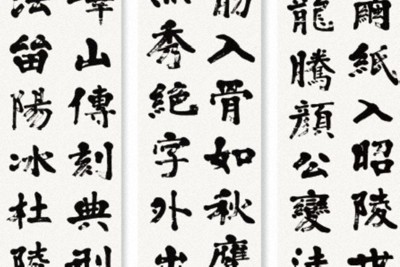 繭紙入昭陵世
龍騰顏公變法
筋入骨如秋鷹
秀絕字外出
嶧山傳刻典刑
法留陽冰杜陵